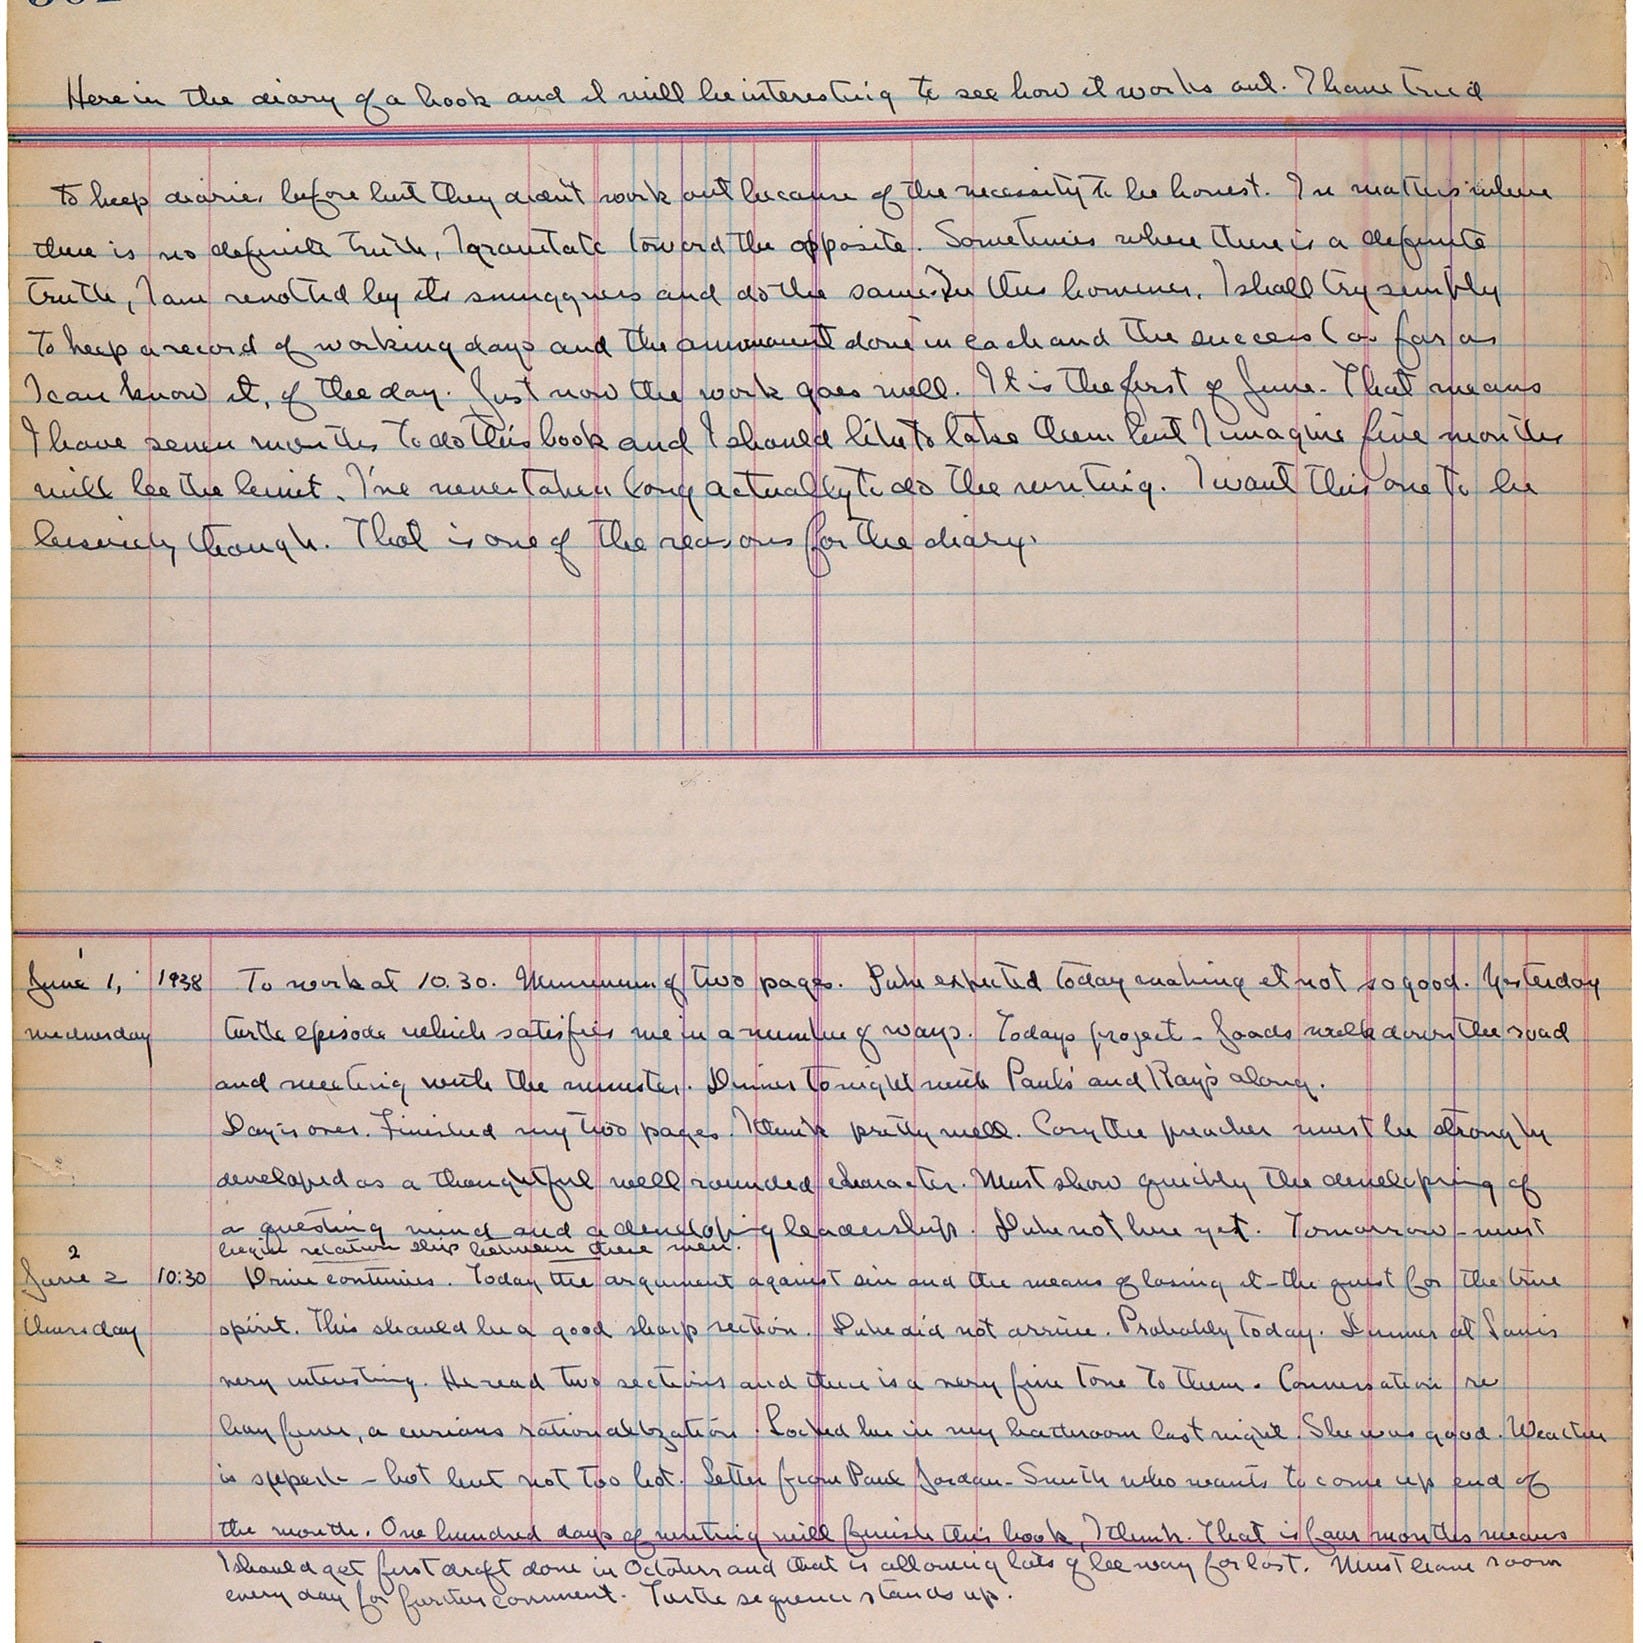 Here is the diary of a book and it will be interesting to see how it works out. I have tried
to keep diaries before but they didn't work out because of the necessity to be honest. In matters where
there is no definite truth, I gravitate toward the opposite. Sometimes where there is a definite
truth, I am revolted by its smugness and do the same. In this however, I shall try simply
to keep a record of working days and the amount done in each and the success (as far as
I can know it, of the day. Just now the work goes well. It is the first of June. That means
I have seven months to do this book and I should like to take them but I imagine five months
will be the limit. I've never taken long actually to do the writing. I want this one to be
leisurely though. That is one of the reasons for the diary.
June 1, 1938 To work at 10.30. Minimum of two pages. Duke expected today making it not so good. Yesterday
Wednesday turtle episode which satisfies me in a number of ways. Todays project - Joads walk down the road
and meeting with the minister. Dinner tonight with Pauls and Rays along.
Day is over. Finished my two pages. I think pretty well. Casy the preacher must be strongly
developed as a thoughtful well rounded character. Must show quickly the developing of
a questing mind and a developing leadership. Duke not here yet. Tomorrow - must
begin relation ship between these men.
2
June 2 10:30 Drive continues. Today the argument against sin and the means of losing it - the quest for the true
Thursday spirit. This should be a good sharp section. Duke did not arrive. Probably today. Dinner at
very interesting. He read two sections and there is a very fine tone to them. Conversation re
hay fever, a curious rationalization. Locked her in my bathroom last night. She was good. Weather
is superb - hot but not too hot. Letter from Paul Jordan-Smith who wants to come up end of
the month. One hundred days of writing will finish this book, I think. That is four months means
I should get first draft done in October and that is allowing lots of lee way for lost. Must leave room
every day for further comment. Turtle sequence stands up.